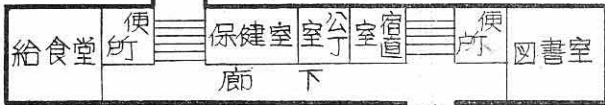 給食堂
便所
保健室
公丁室
宿道室
便所
図書室
廊下